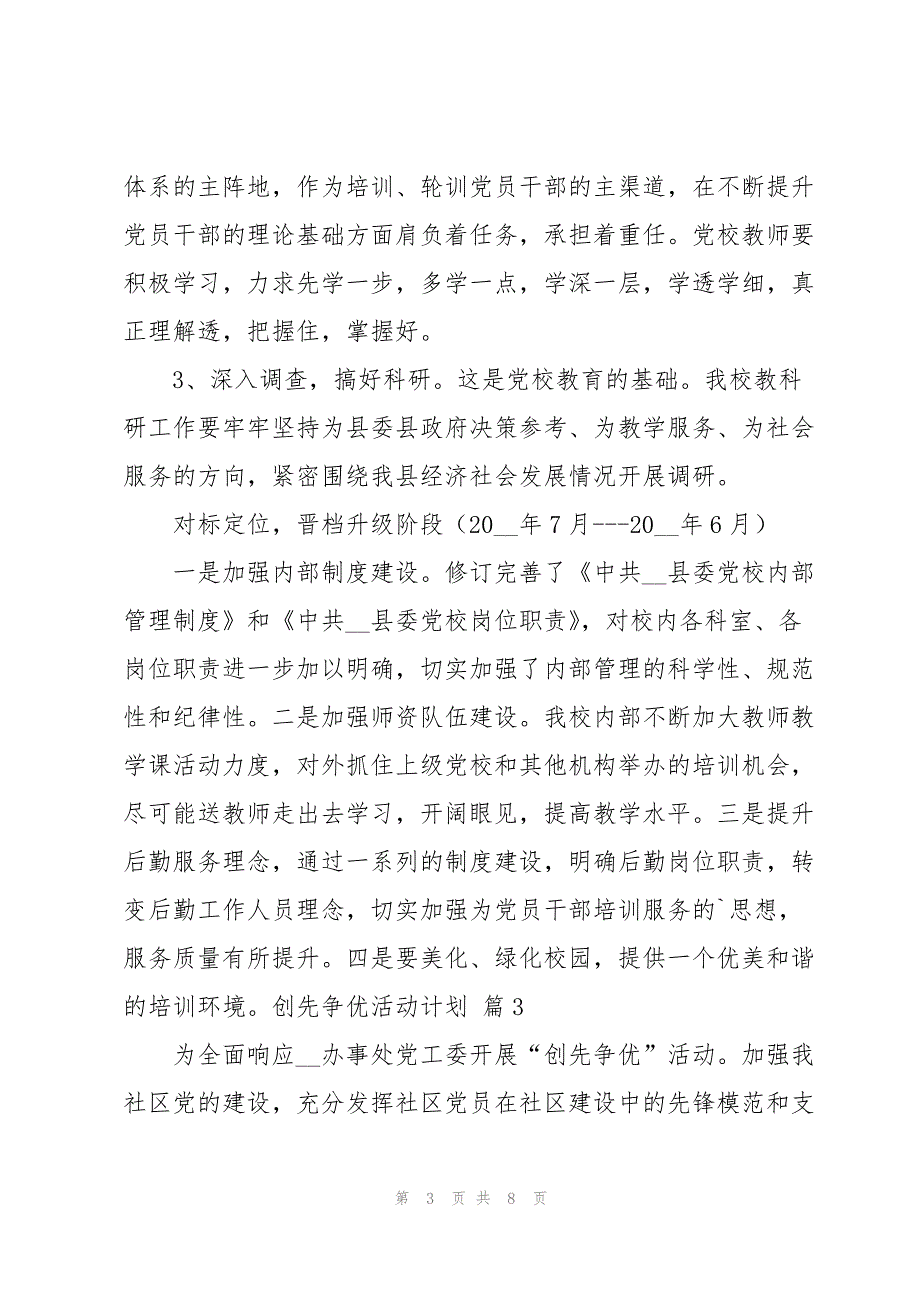 体系的主阵地，作为培训、轮训党员干部的主渠道，在不断提升
党员干部的理论基础方面肩负着任务，承担着重任。党校教师要
积极学习，力求先学一步，多学一点，学深一层，学透学细，真
正理解透，把握住，掌握好。
3、深入调查，搞好科研。这是党校教育的基础。我校教科
研工作要牢牢坚持为县委县政府决策参考、为教学服务、为社会
服务的方向，紧密围绕我县经济社会发展情况开展调研。
对标定位，晋档升级阶段（20__年7月---20__年6月）
一是加强内部制度建设。修订完善了《中共__县委党校内部
管理制度》和《中共__县委党校岗位职责》，对校内各科室、各
岗位职责进一步加以明确，切实加强了内部管理的科学性、规范
性和纪律性。二是加强师资队伍建设。我校内部不断加大教师教
学课活动力度，对外抓住上级党校和其他机构举办的培训机会，
尽可能送教师走出去学习，开阔眼见，提高教学水平。三是提升
后勤服务理念，通过一系列的制度建设，明确后勤岗位职责，转
变后勤工作人员理念，切实加强为党员干部培训服务的`思想，
服务质量有所提升。四是要美化、绿化校园，提供一个优美和谐
的培训环境。创先争优活动计划 篇3
为全面响应__办事处党工委开展“创先争优”活动。加强我
社区党的建设，充分发挥社区党员在社区建设中的先锋模范和支
第 3 页 共 8 页